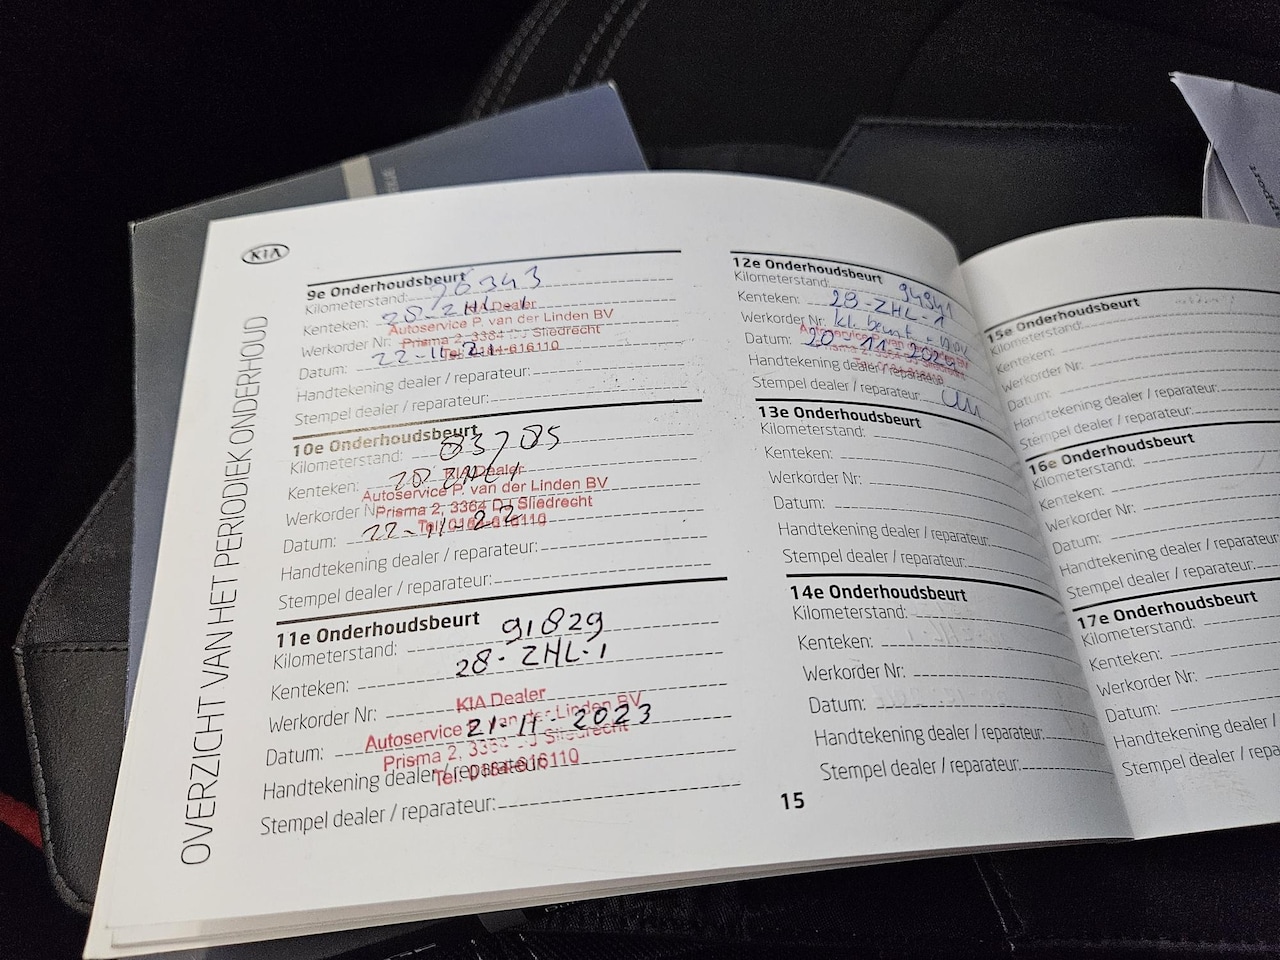 KIA
OVERZICHT VAN HET PERIODIEK ONDERHOUD
9e Onderhoudsbeurt
Kilometerstand: 76343
Kenteken: 28-ZHL-1
KIA Dealer
Autoservice P. van der Linden BV
Werkorder Nr: Prisma 2, 3364 DJ Sliedrecht
Datum: 22-11-21
Tel: 0184-616110
Handtekening dealer / reparateur:
Stempel dealer / reparateur:
10e Onderhoudsbeurt
Kilometerstand: 83785
Kenteken: 28 ZHL 1
KIA Dealer
Autoservice P. van der Linden BV
Werkorder Nr: Prisma 2, 3364 DJ Sliedrecht
Datum: 22-11-22
Tel: 0184-616110
Handtekening dealer / reparateur:
Stempel dealer / reparateur:
11e Onderhoudsbeurt
Kilometerstand: 91829
Kenteken: 28-ZHL-1
Werkorder Nr:
KIA Dealer
Autoservice P. van der Linden BV
Datum: 21-11-2023
Prisma 2, 3364 DJ Sliedrecht
Handtekening dealer / reparateur:
Tel: 0184-616110
Stempel dealer / reparateur:
12e Onderhoudsbeurt
Kilometerstand: 94941
Kenteken: 28-ZHL-1
Werkorder Nr: kl. beurt +
Datum: 20-11-202
Handtekening dealer / reparateur:
Stempel dealer / reparateur:
13e Onderhoudsbeurt
Kilometerstand:
Kenteken:
Werkorder Nr:
Datum:
Handtekening dealer / reparateur:
Stempel dealer / reparateur:
14e Onderhoudsbeurt
Kilometerstand:
Kenteken:
Werkorder Nr:
Datum:
Handtekening dealer / reparateur:
Stempel dealer / reparateur:
15
15e Onderhoudsbeurt
Kilometerstand:
Kenteken:
Werkorder Nr:
Datum:
Handtekening dealer / reparateur:
Stempel dealer / reparateur:
16e Onderhoudsbeurt
Kilometerstand:
Kenteken:
Werkorder Nr:
Datum:
Handtekening dealer / reparateur:
Stempel dealer / reparateur:
17e Onderhoudsbeurt
Kilometerstand:
Kenteken:
Werkorder Nr:
Datum:
Handtekening dealer /
Stempel dealer / repa